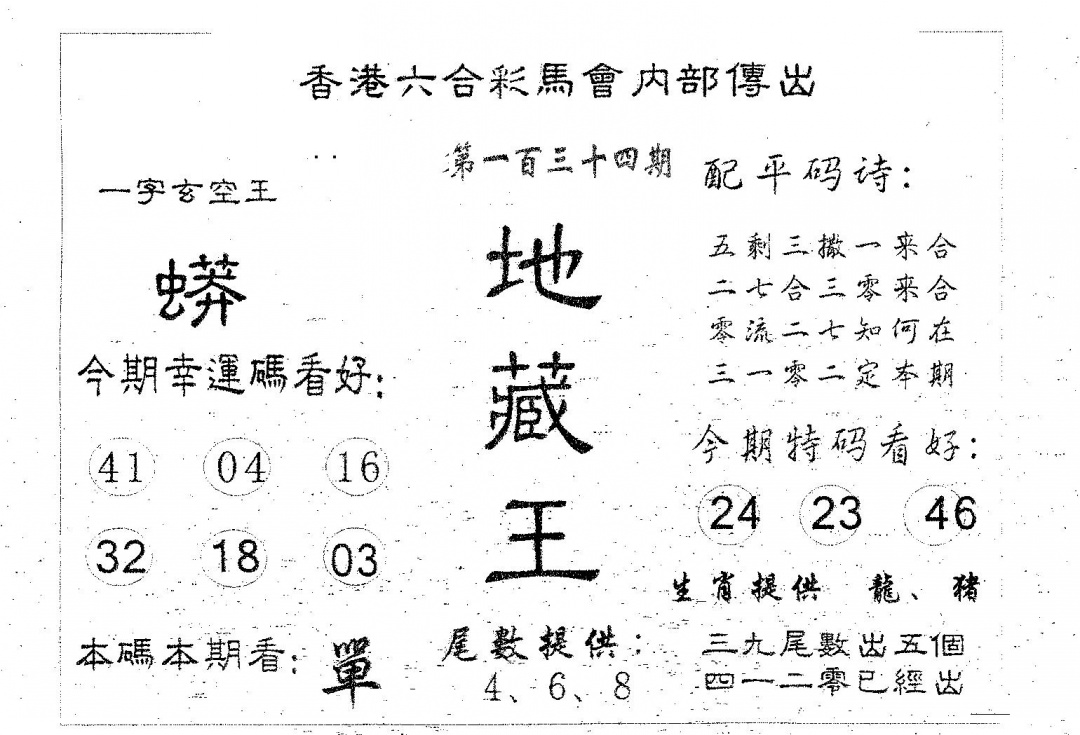 香港六合彩馬會内部傳出
第一百三十四期
一字玄空王
蟒
今期幸運碼看好:
41 04 16
32 18 03
本碼本期看: 單
地
藏
王
尾數提供:
4、6、8
配平码诗:
五剩三撒一来合
二七合三零来合
零流二七知何在
三一零二定本期
今期特码看好:
24 23 46
生肖提供 龍、猪
三九尾數出五個
四一二零已經出